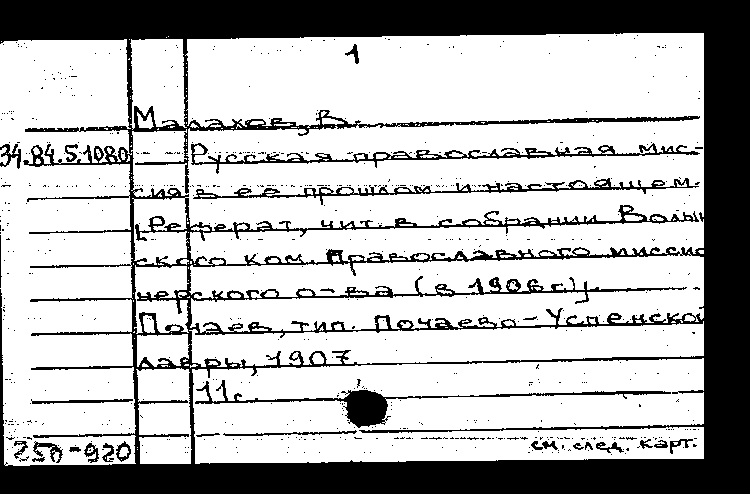 1
Малахов, В.
34.84.5.1080 Русская православная мис-
сия в ее прошлом и настоящем.
[Реферат, чит. в собрании Волын
ского ком. Православного миссио
нерского о-ва (в 1906 г.)].
Почаев, тип. Почаево-Успенской
лавры, 1907.
11 с.
250-920 см. след. карт.